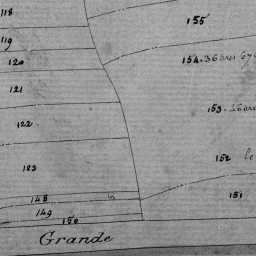 118
155
119
120
154. 36
121
153.
122
123
152 le
151
148
149
150
Grande